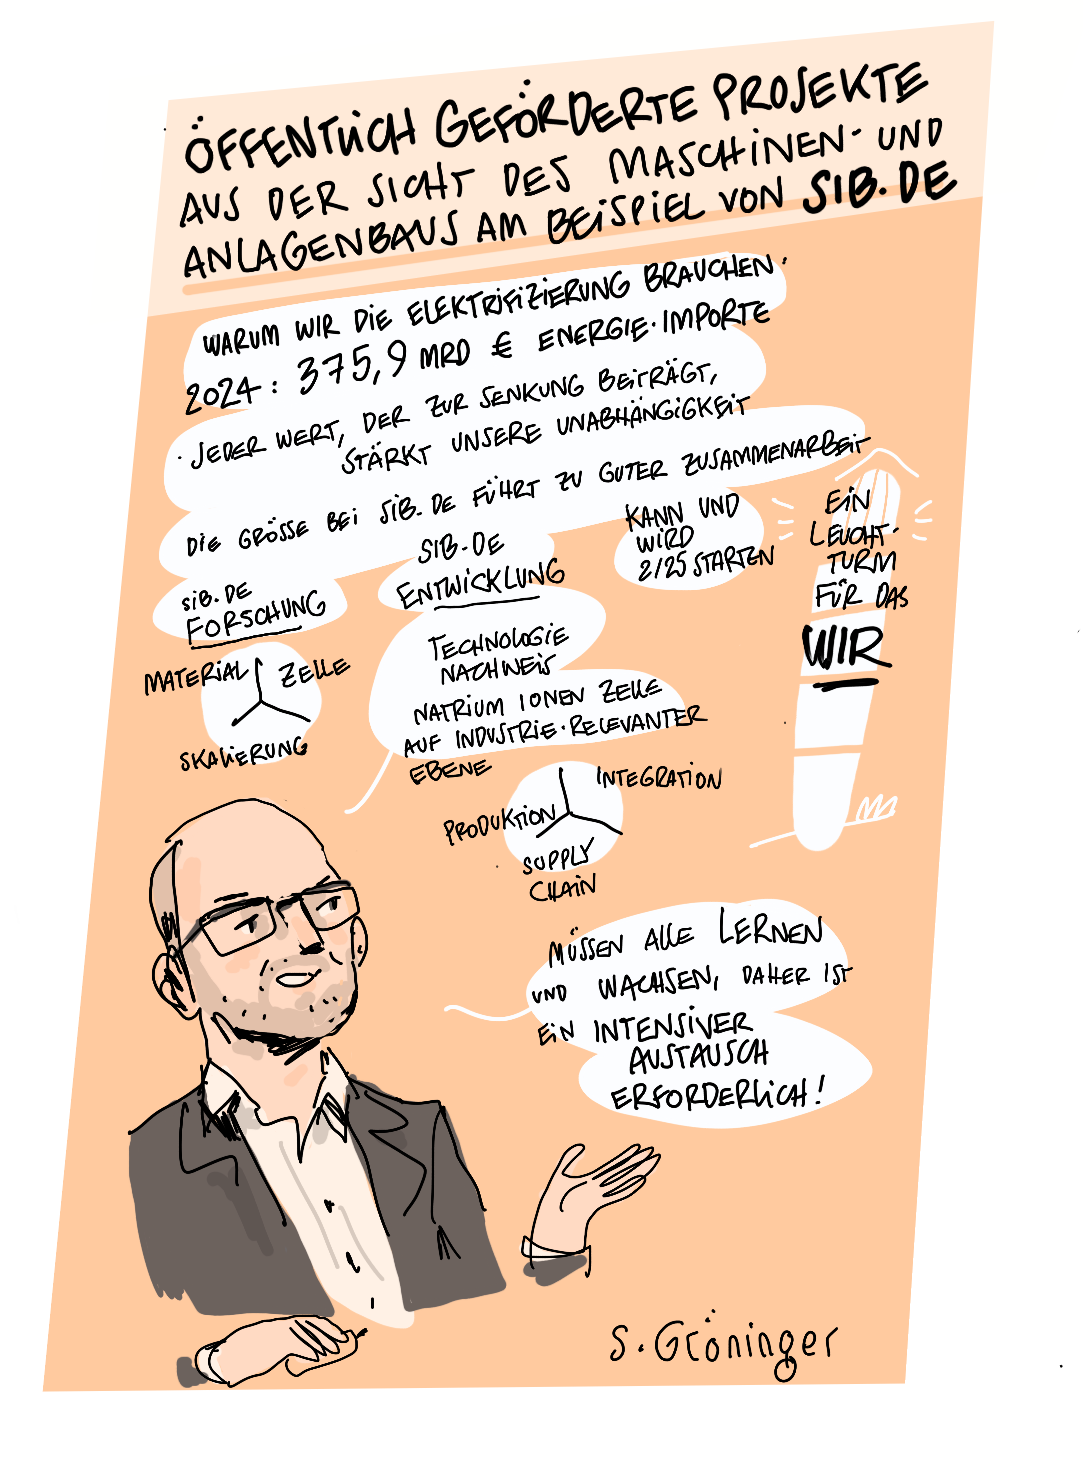 ÖFFENTLICH GEFÖRDERTE PROJEKTE
AUS DER SICHT DES MASCHINEN- UND
ANLAGENBAUS AM BEISPIEL VON SIB.DE
WARUM WIR DIE ELEKTRIFIZIERUNG BRAUCHEN.
2024: 375,9 MRD € ENERGIE-IMPORTE
· JEDER WERT, DER ZUR SENKUNG BEITRÄGT,
STÄRKT UNSERE UNABHÄNGIGKEIT
DIE GRÖSSE BEI SIB.DE FÜHRT ZU GUTER ZUSAMMENARBEIT
SIB.DE
FORSCHUNG
MATERIAL ZELLE
SKALIERUNG
SIB-DE
ENTWICKLUNG
TECHNOLOGIE
NACHWEIS
NATRIUM IONEN ZELLE
AUF INDUSTRIE-RELEVANTER
EBENE
INTEGRATION
PRODUKTION
SUPPLY
CHAIN
KANN UND
WIRD
2/25 STARTEN
EIN
LEUCHT-
TURM
FÜR DAS
WIR
MÜSSEN ALLE LERNEN
UND WACHSEN, DAHER IST
EIN INTENSIVER
AUSTAUSCH
ERFORDERLICH!
S. Gröninger